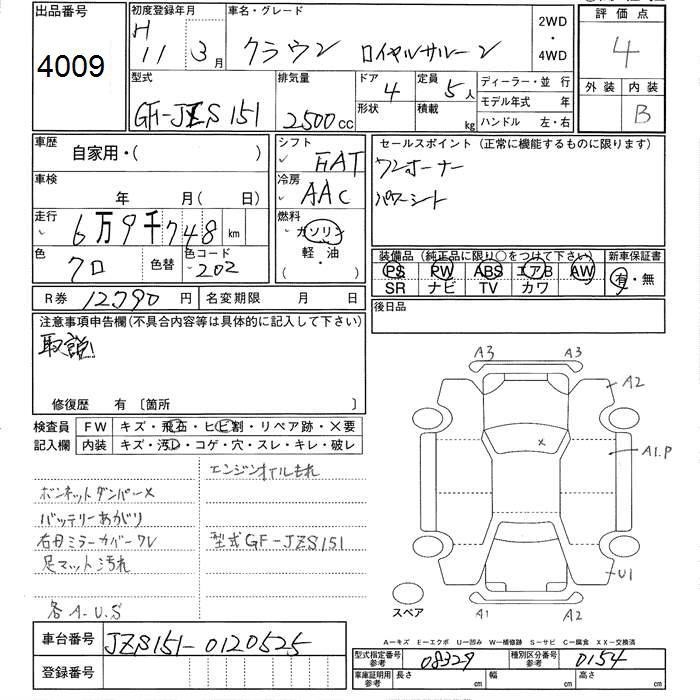 出品番号
4009
初度登録年月
H 11 3 月
車名・グレード
クラウン ロイヤルサルーン
2WD
・
4WD
評価点
4
外装 内装
B
型式
GF-JZS151
排気量
2500cc
ドア
4
形状
定員
5人
積載
kg
ディーラー・並行
モデル年式 年
ハンドル 左・右
車歴
自家用・( )
シフト
FAT
セールスポイント (正常に機能するものに限ります)
ワンオーナー
パワーシート
車検
年 月( 日)
冷房
AAC
走行
6万9千748km
燃料
ガソリン
・
軽・油
・
( )
色
クロ
色替
色コード
202
装備品 (純正品に限り○をつけて下さい)
PS PW ABS エアB AW
SR ナビ TV カワ
新車保証書
有・無
R券 12,790 円
名変期限 月 日
後日品
注意事項申告欄(不具合内容等は具体的に記入して下さい)
取説!
修復歴 有 〔箇所
検査員
記入欄
FW キズ・飛石・ヒビ割・リペア跡・×要
内装 キズ・汚レ・コゲ・穴・スレ・キレ・破レ
エンジンオイルもれ
ボンネットダンパー×
バッテリーあがり
右ドミラーカバーワレ
型式GF-JZS151
足マット汚れ
各A.U.S
A3 A3
A2
×
A1.P
U1
A1 A2
スペア
車台番号 JZS151-0120525
登録番号
A−キズ E−エクボ U−凹み W−補修跡 S−サビ C−腐食 XX−交換済
型式指定番号
参考
08329
種別区分番号
参考
0154
車庫証明用
参考
長さ 幅 高さ